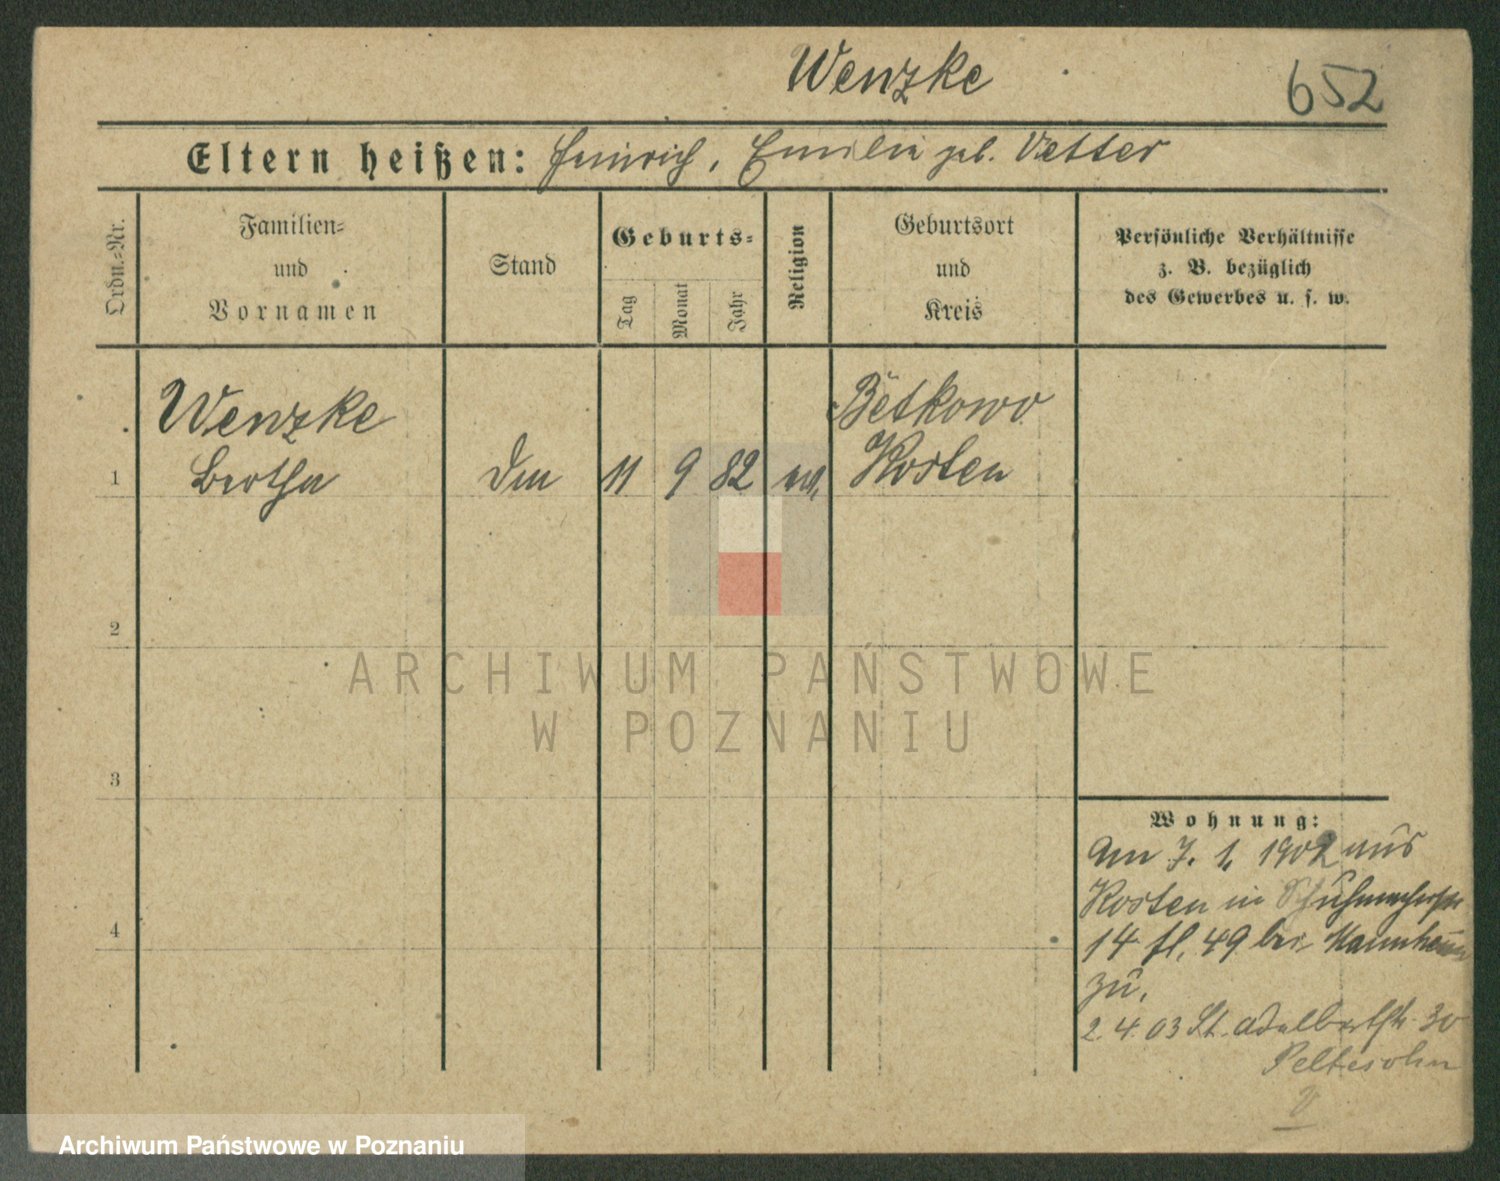 Wenzke
652
Eltern heißen: Heinrich, Emilie geb. Vetter
Ordn.-Nr.
Familien-
und
Vornamen
Stand
Geburts-
Tag
Monat
Jahr
Religion
Geburtsort
und
Kreis
Persönliche Verhältnisse
z. B. bezüglich
des Gewerbes u. s. w.
Wenzke
Bertha
1
11
9
82
ev.
Betkowo
Kosten
2
3
4
Wohnung:
Am 7. 1. 1902 aus
Kosten in Schuhmacherstr
14 fl. 49 bei
zu.
2. 4. 03 St. Adalbertstr. 30
Peltesohn
ARCHIWUM PAŃSTWOWE
W POZNANIU
Archiwum Państwowe w Poznaniu